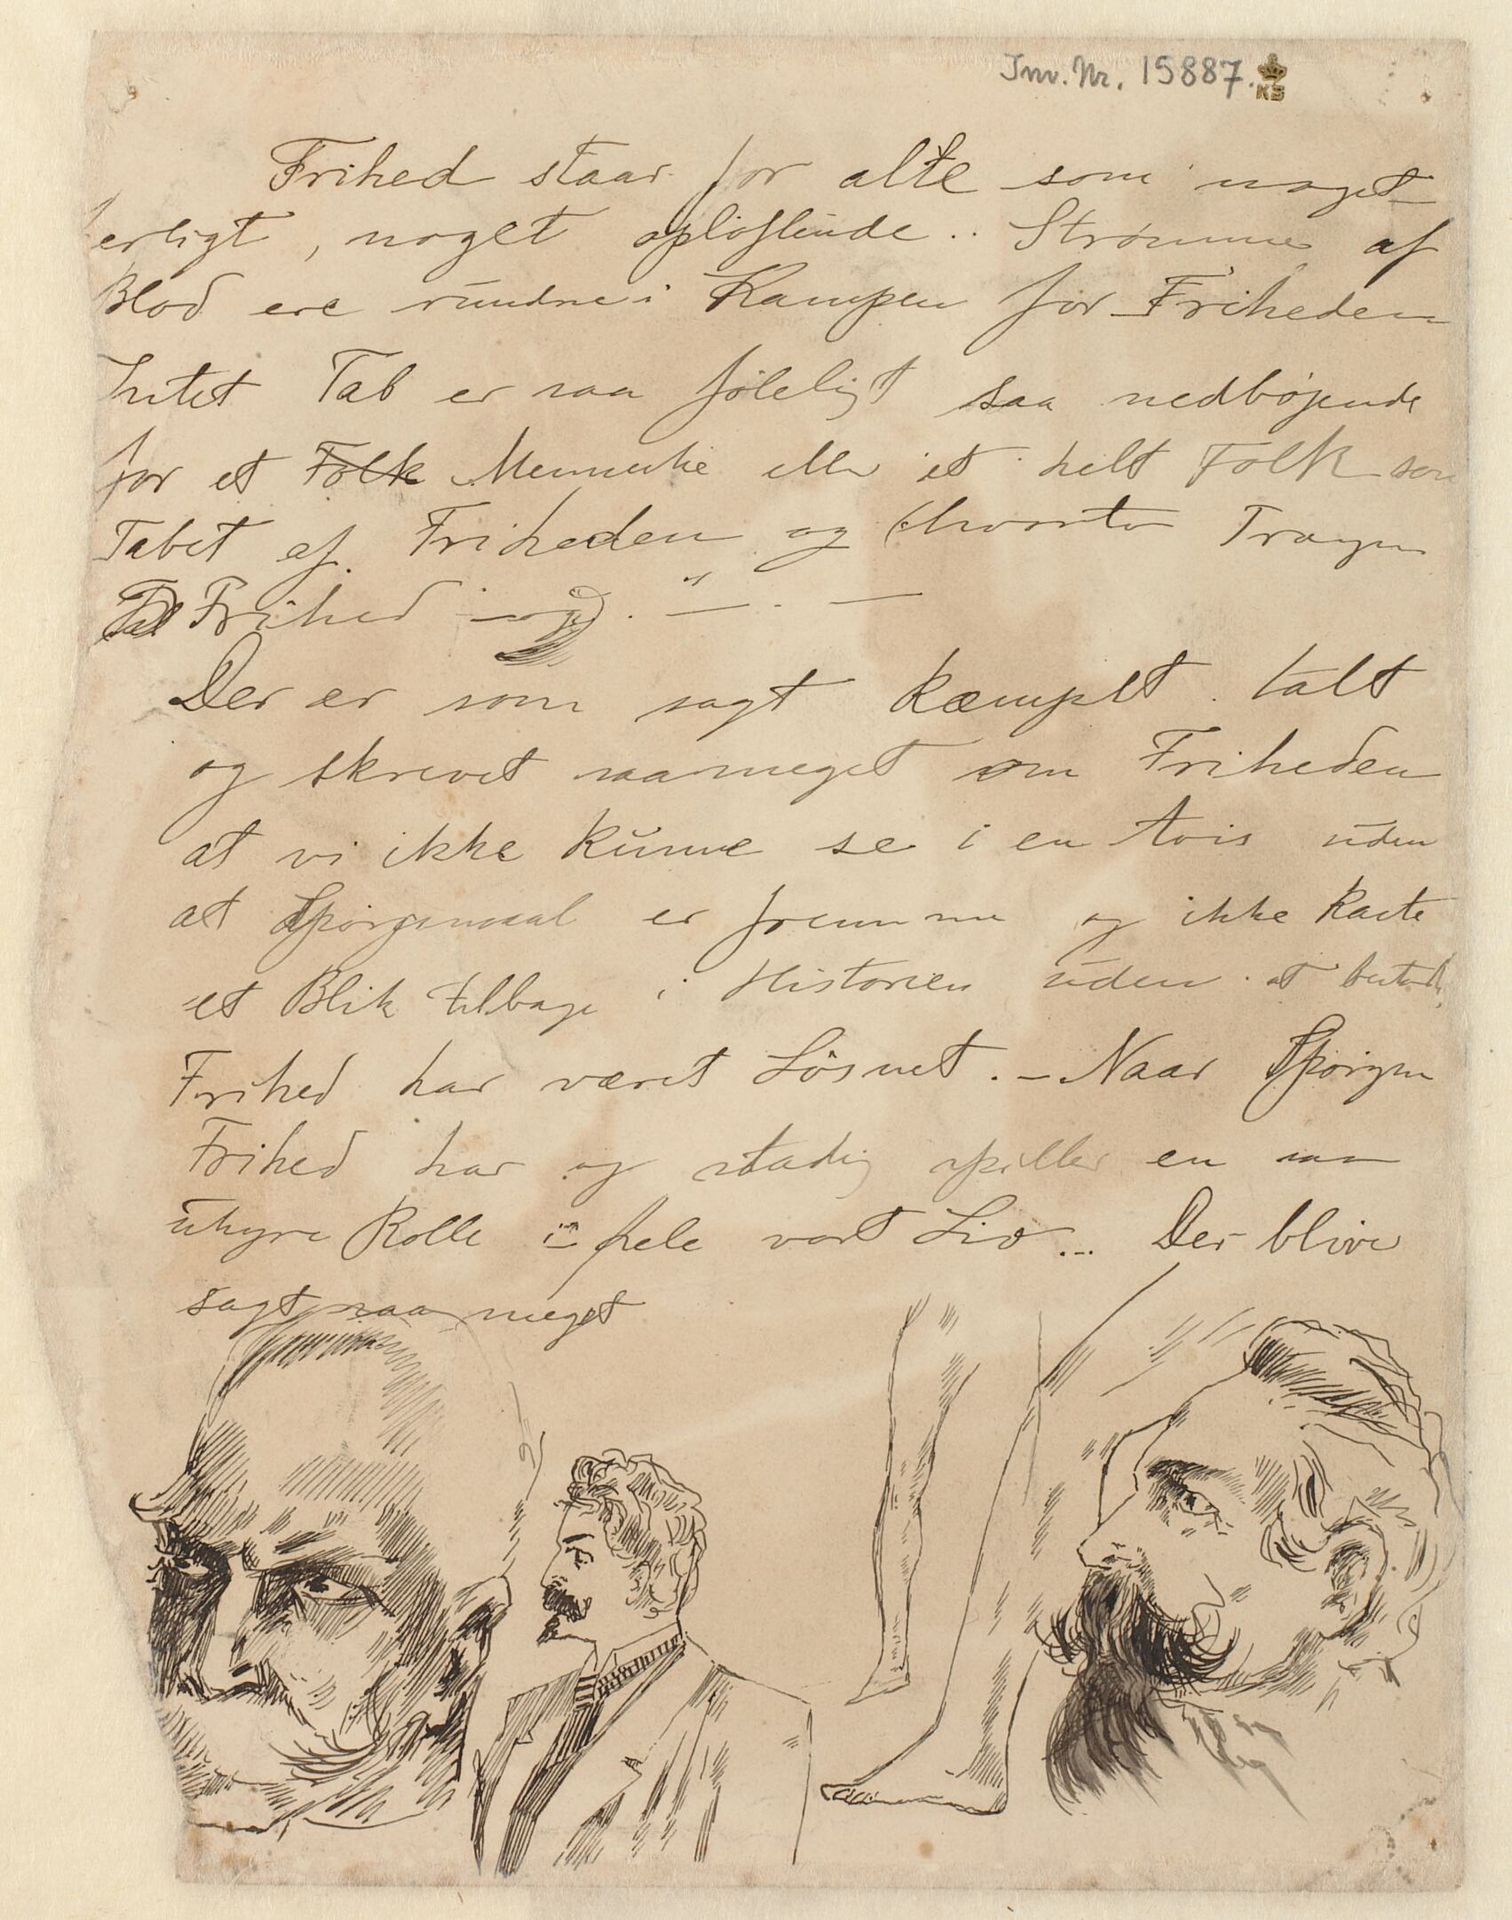 Inv. Nr. 15887.
KS
Frihed staar for alle som noget
erligt, noget opløftende.. Strømme af
Blod ere rundne i Kampen for Friheden
Intet Tab er saa føleligt saa nedbøjende
for et Folk Menneske eller et helt Folk som
Tabet af Friheden og
Frihed
Der er som sagt kæmpet talt
og skrevet saameget om Friheden
at vi ikke kunne se i en Avis uden
at Spørgsmaal er fremme og ikke kaste
et Blik tilbage i Historien uden at
Frihed har været Løsnet. – Naar
Frihed har og stadig spiller en saa
uhyre Rolle i hele vort Liv... Der blive
sagt saa meget